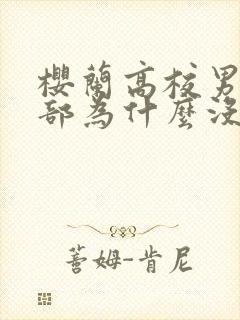 櫻蘭高校男
部為什麼沒
蓍姆-肯尼